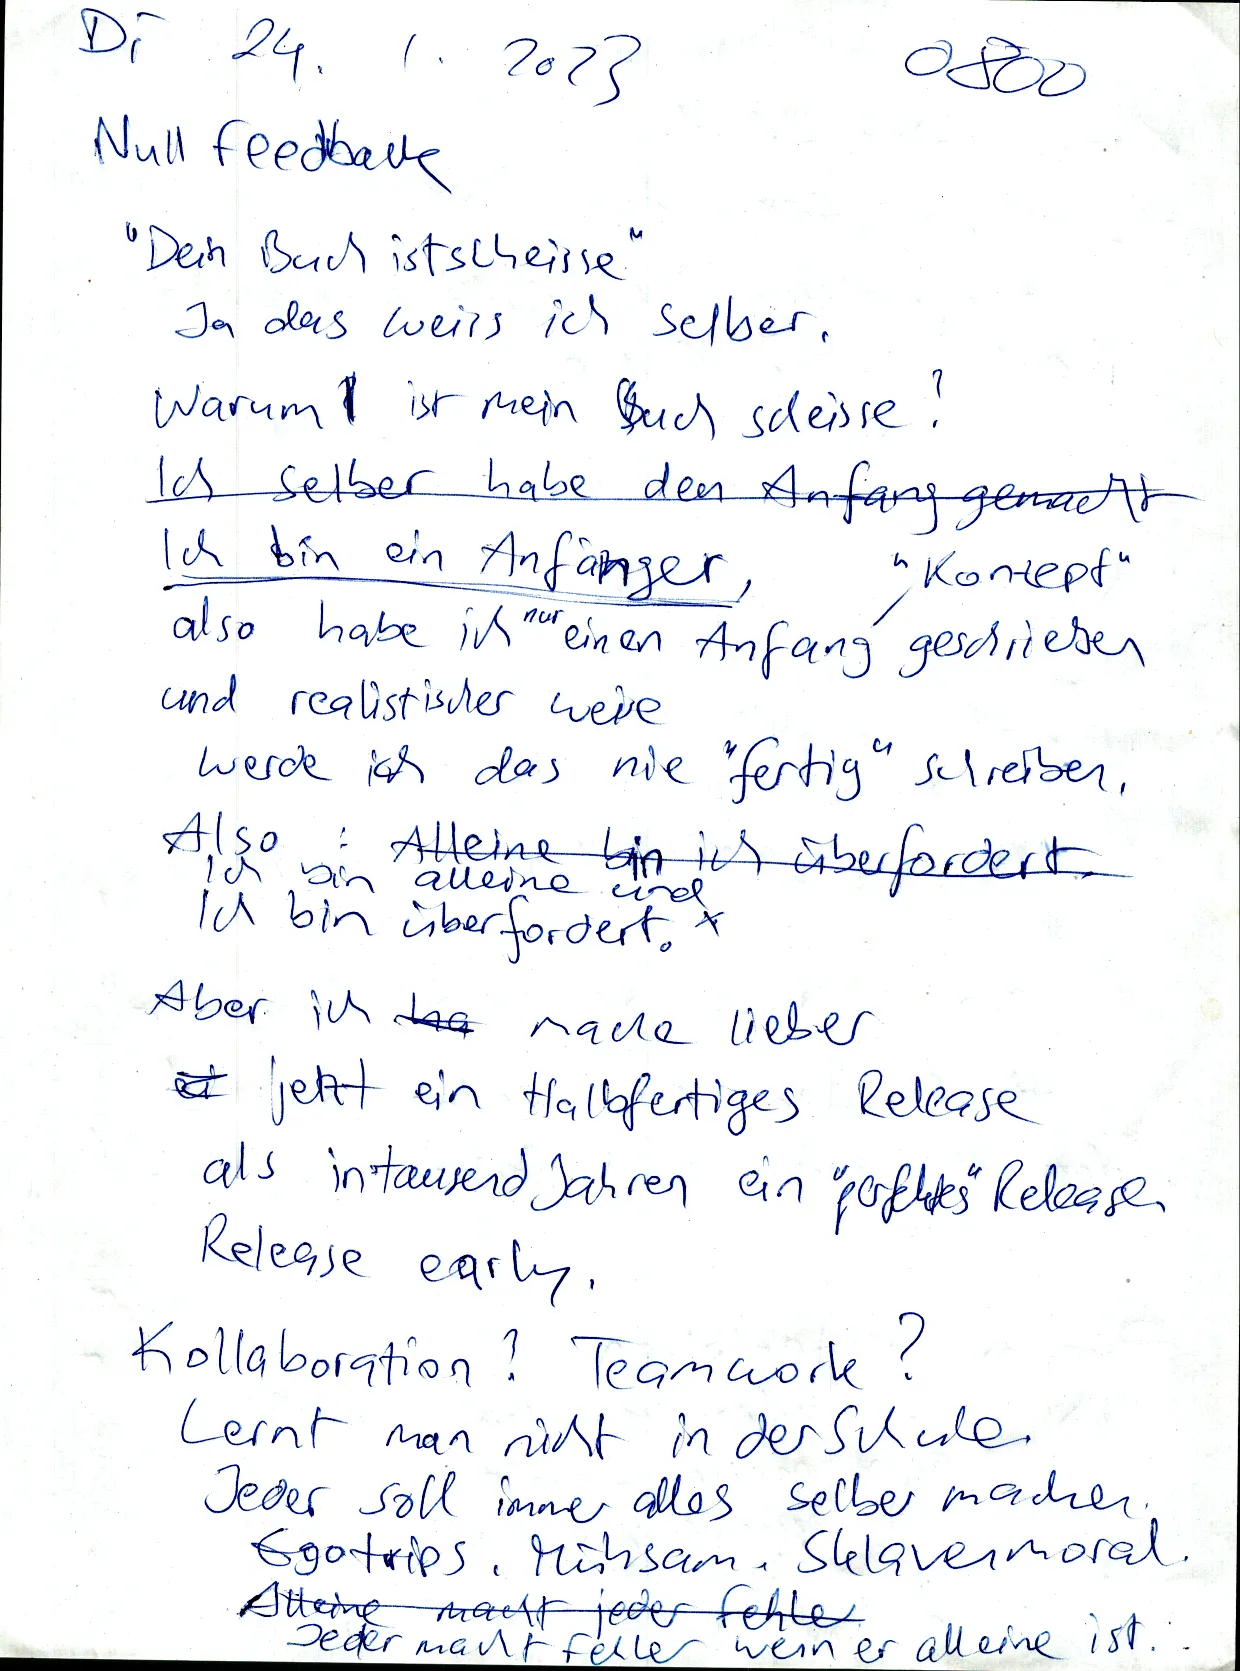 Di 24. 1. 2023 0800
Null feedback
"Dein Buch ist scheisse"
Ja das weiss ich selber.
Warum ist mein Buch scheisse?
Ich selber habe den Anfang gemacht
Ich bin ein Anfänger,
"Konzept"
also habe ich nur einen Anfang geschrieben
und realistischer weise
werde ich das nie "fertig" schreiben.
Also : Alleine bin ich überfordert.
Ich bin alleine und
Ich bin überfordert. *
Aber ich ha mache lieber
jetzt ein Halbfertiges Release
als in tausend Jahren ein "perfektes" Release.
Release early.
Kollaboration? Teamwork?
Lernt man nicht in der Schule.
Jeder soll immer alles selber machen.
Egotrips. Mühsam. Sklavenmoral.
Alleine macht jeder fehler
Jeder macht fehler wenn er alleine ist.